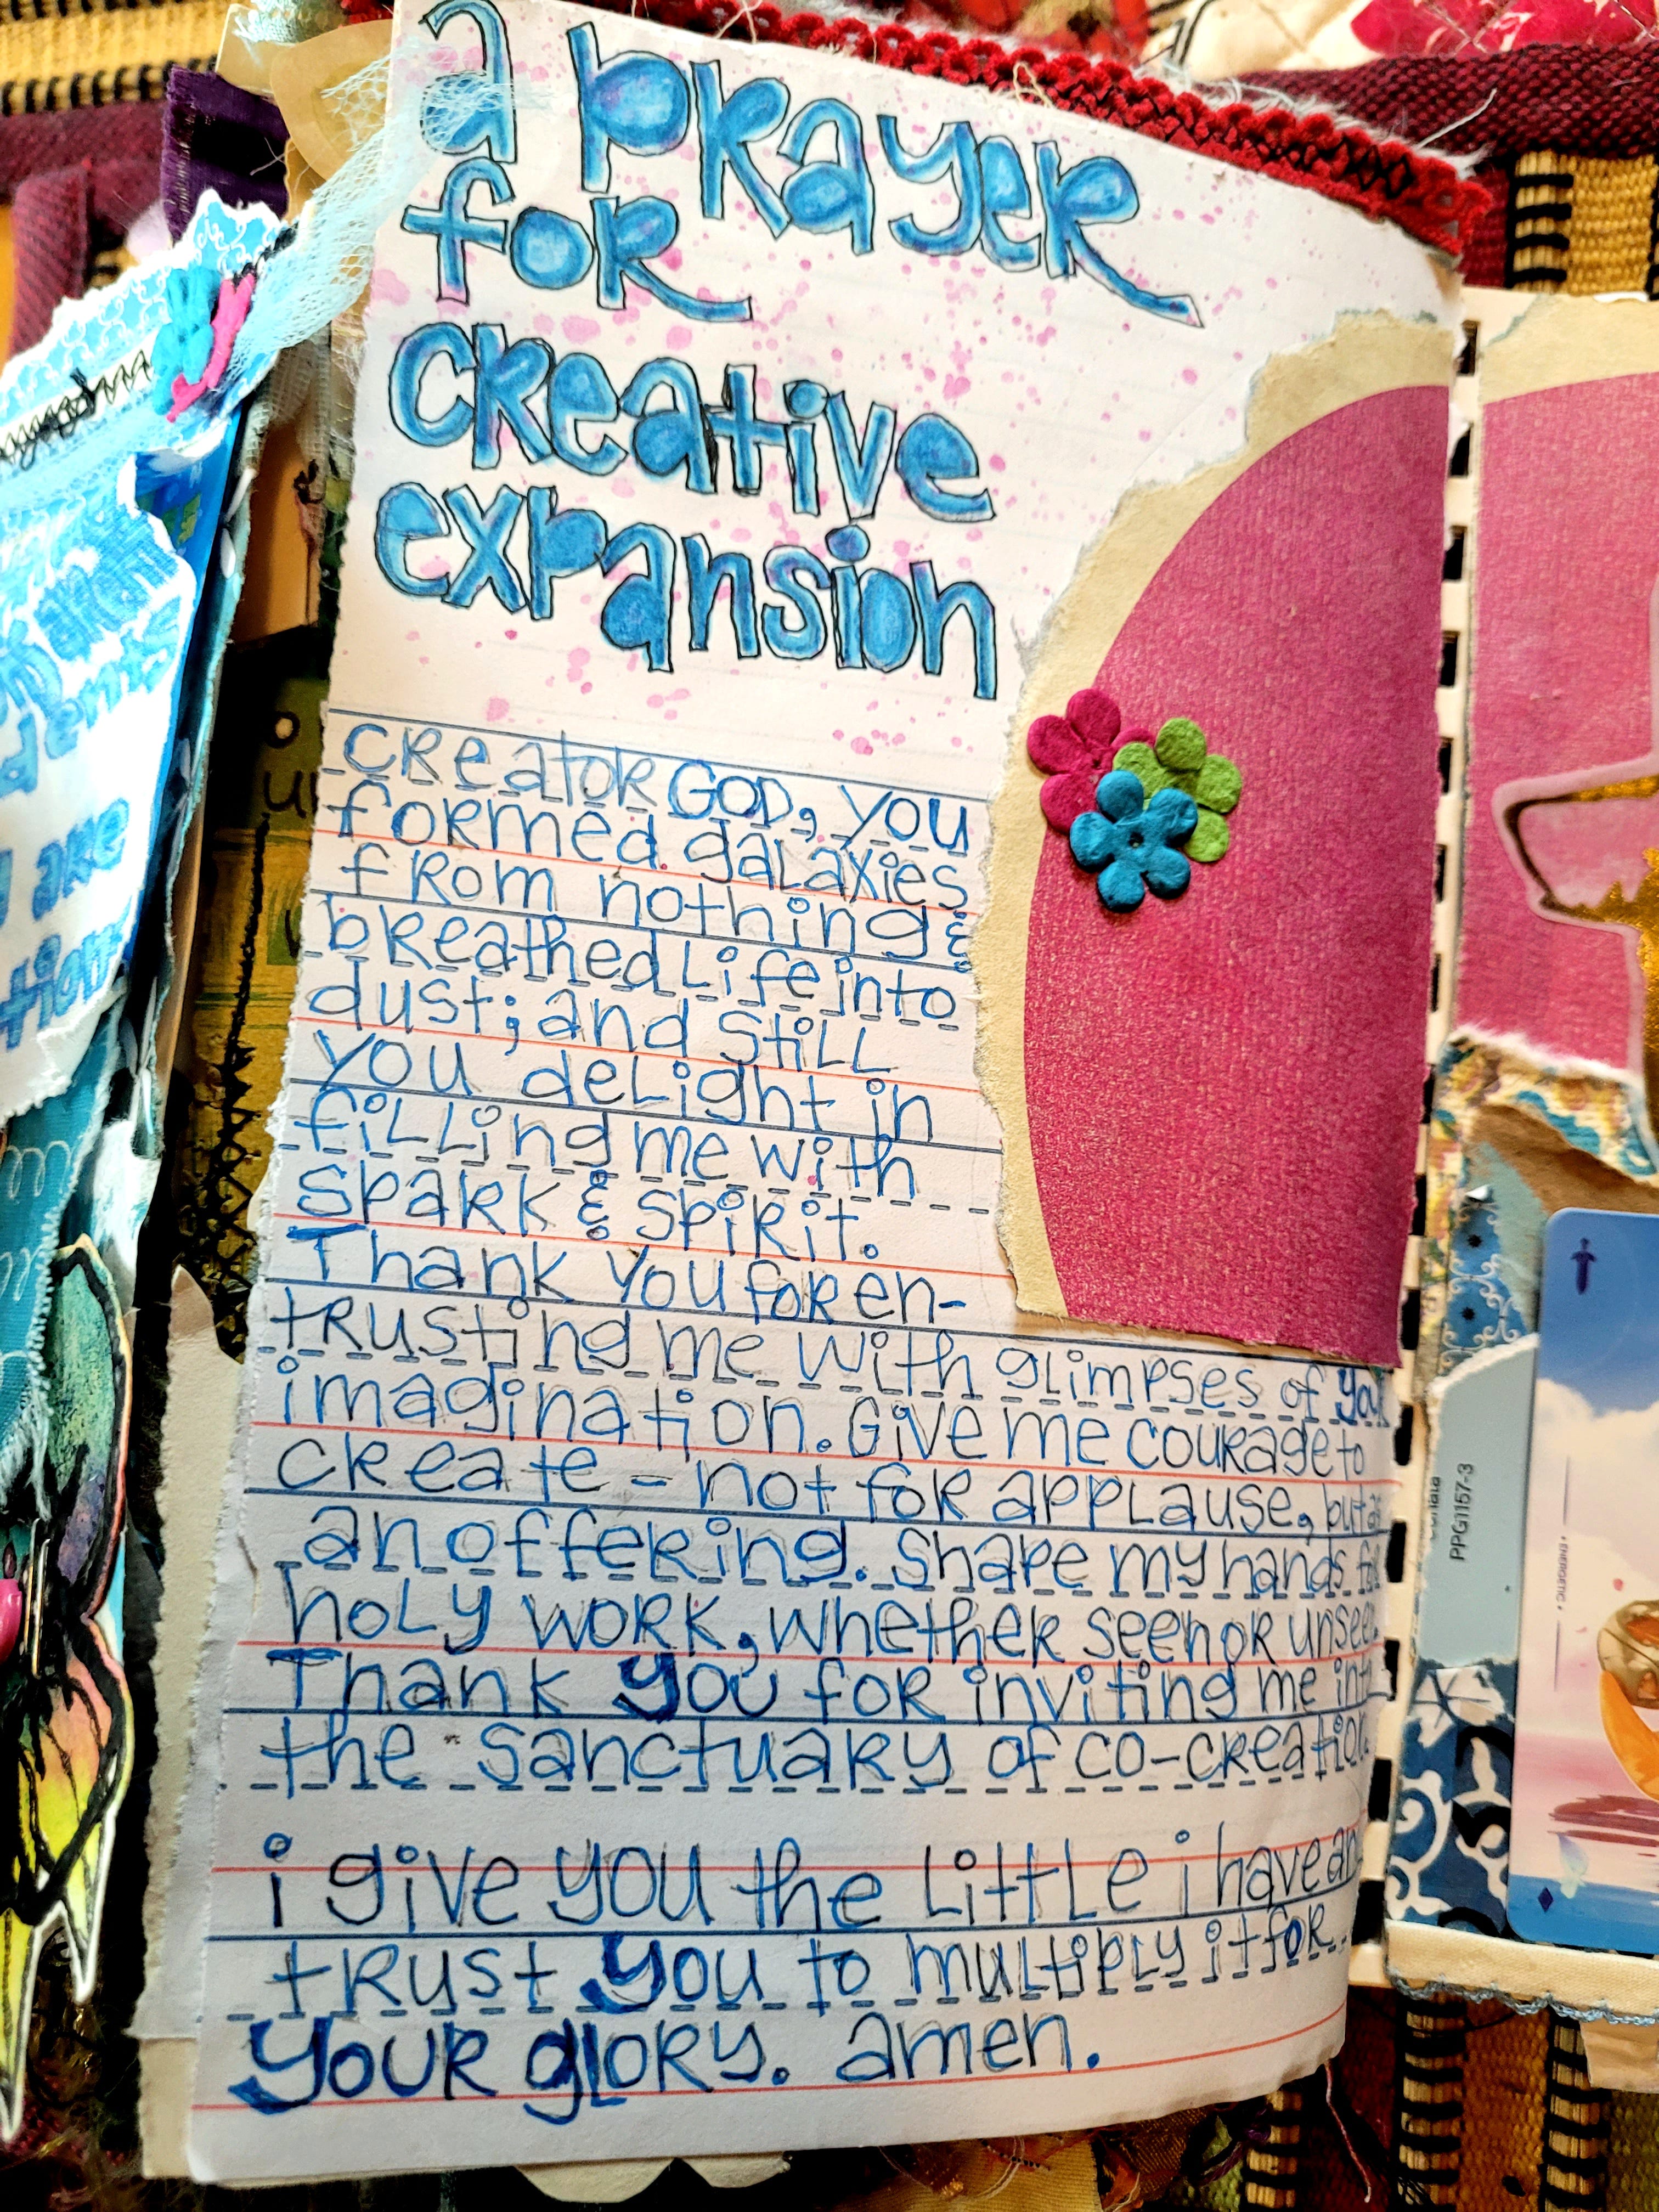 a prayer
for
creative
expansion
Creator GOD, you
formed galaxies
from nothing &
breathed Life into
dust; and Still
you delight in
filling me with
Spark & Spirit.
Thank You for en-
trusting me with glimpses of your
imagination. Give me courage to
create - not for applause, but as
an offering. Shape my hands for
holy work, whether seen or unseen.
Thank you for inviting me into
the sanctuary of co-creation.
i give you the Little i have and
trust you to multiply it for
your glory. amen.
PPG1157-3
• ENERGETIC •